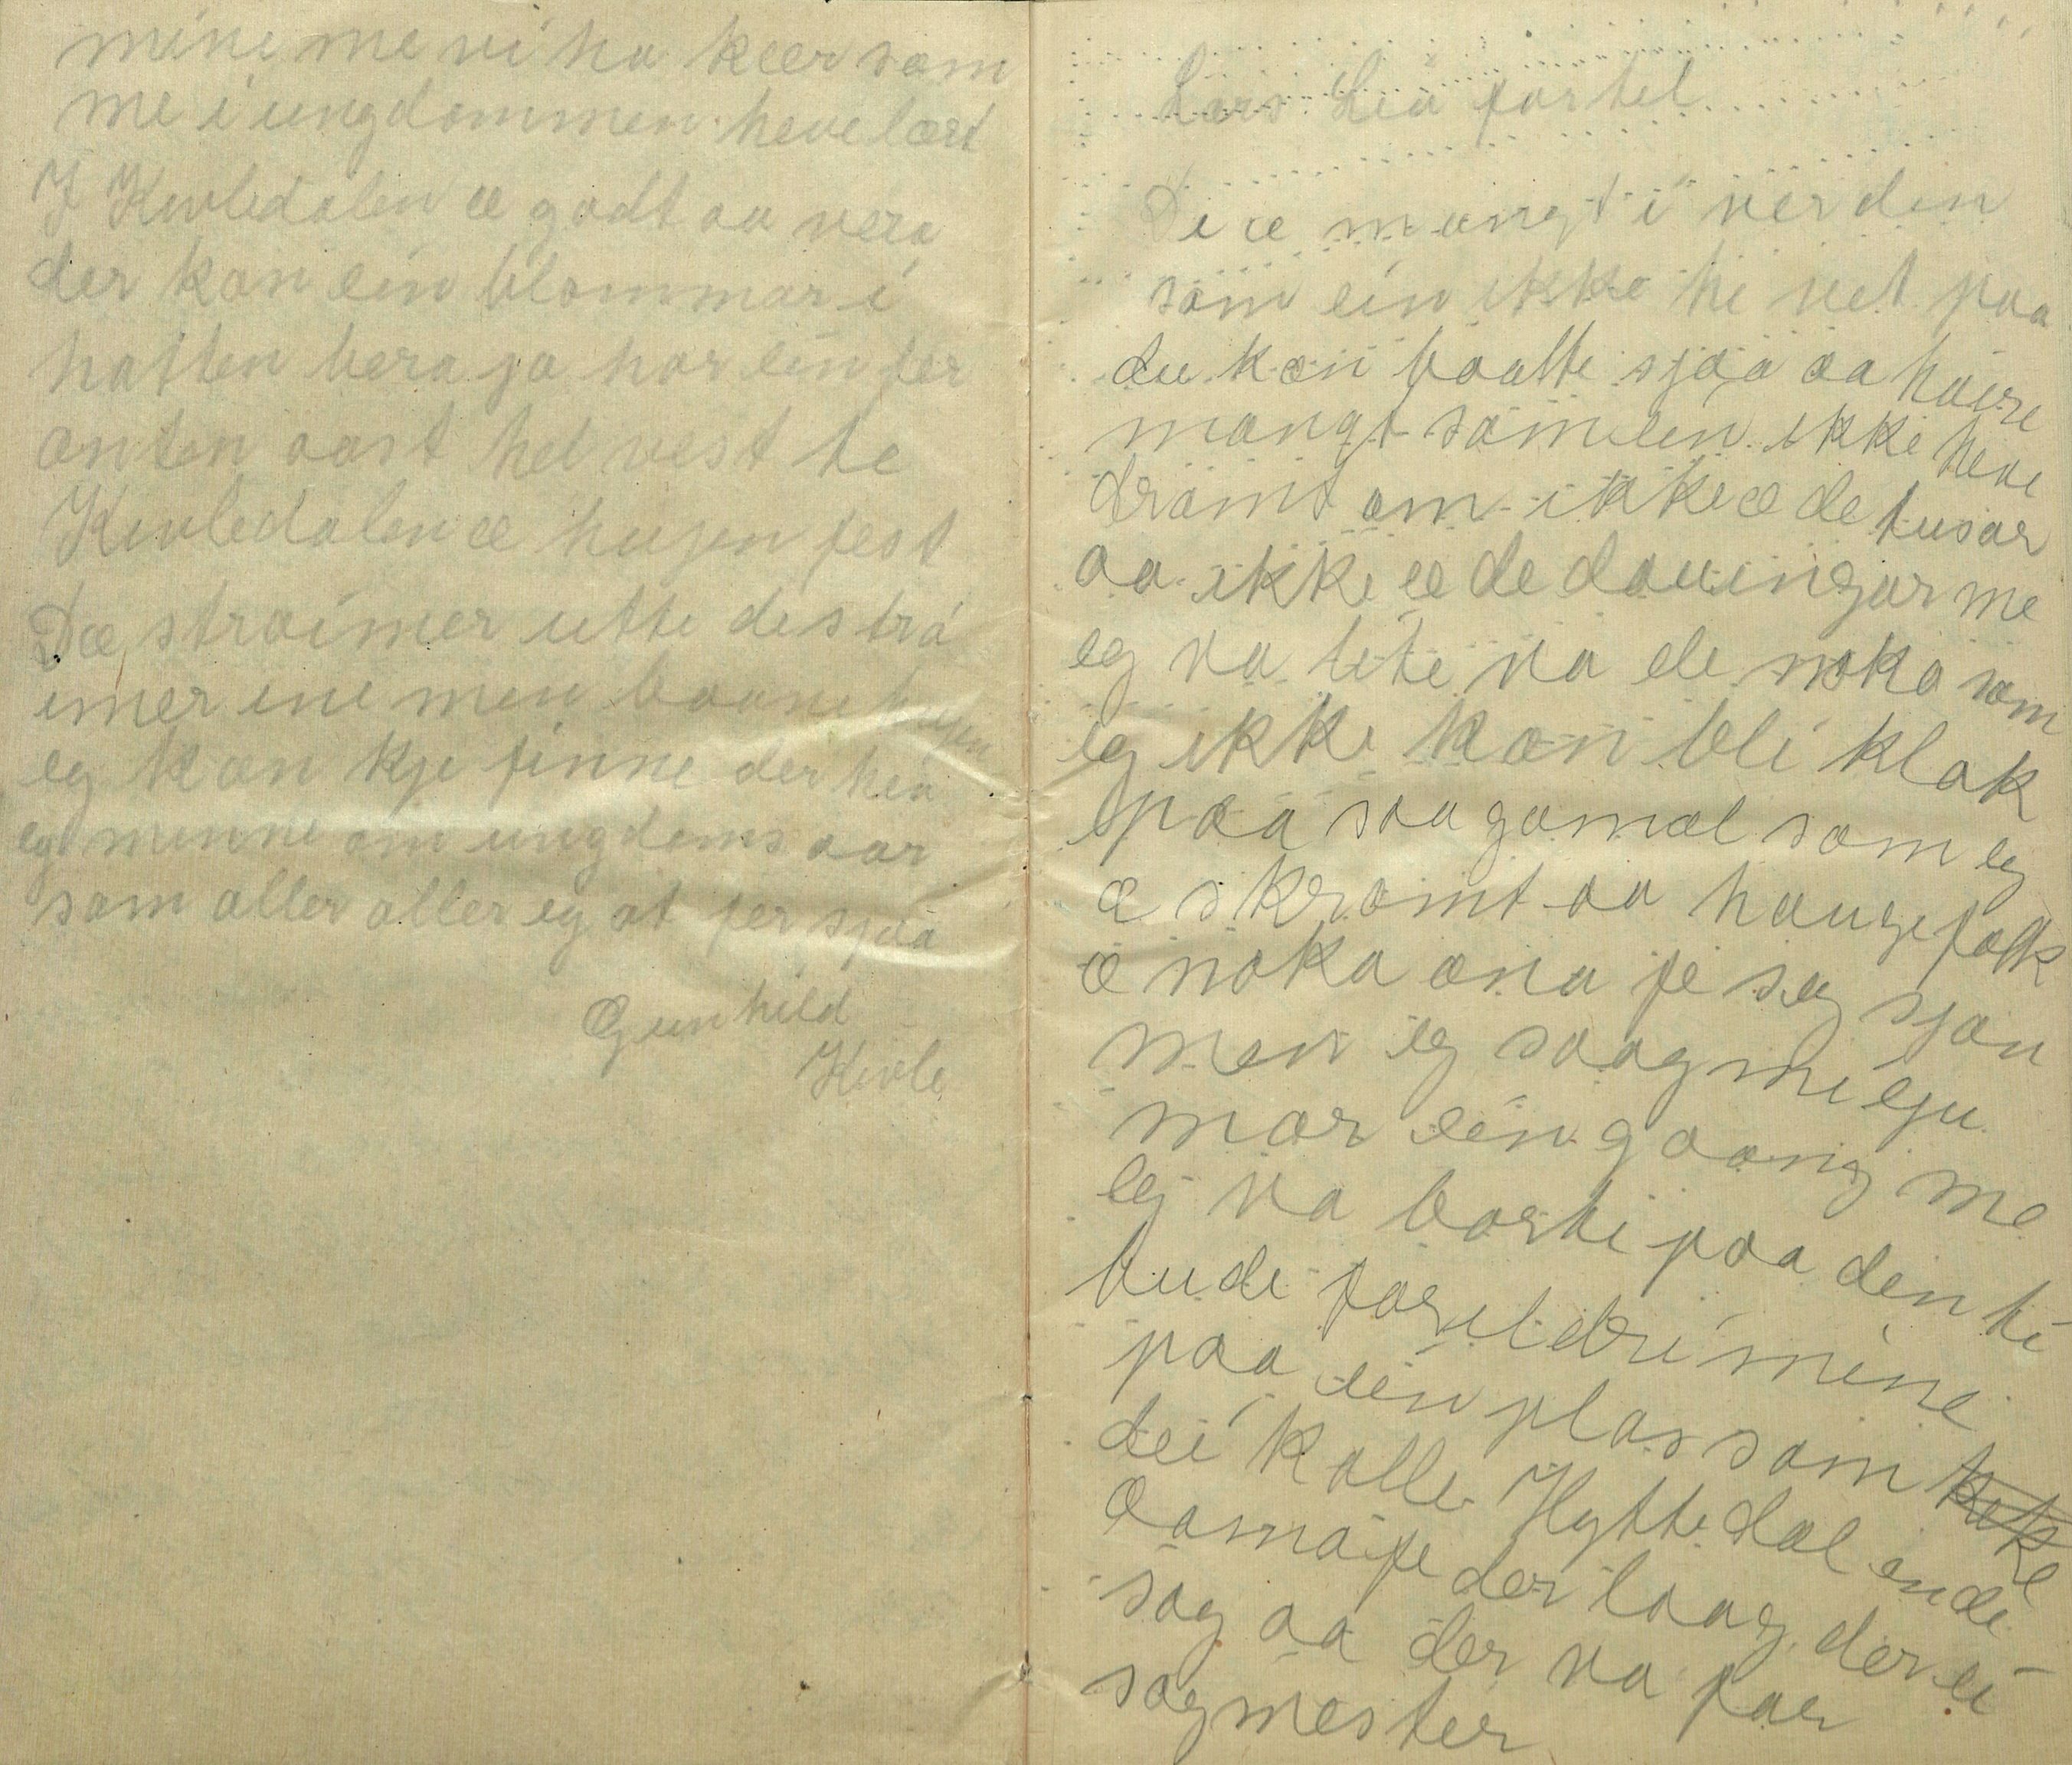 mine me vi ha kær som
me i ungdommen heve lært
I Kivledalen æ godt aa vera
der kan ein blommar i
hatten bera ja har ein fer
anten aast hel vest te
Kivledalen æ hugen fest
Dæ straimer utte de stra
imer ine men baane hugen
eg kan kje finne der hen
eg minne om ungdoms aar
som aller aller eg at fer sjaa
Gunhild
Kivle
Lars Lia fortel
De æ mangt i verden
som ein ikke he vet paa
du kan baatte sjaa aa høire
mangt som ein ikke heve
drømt om ikke æ de tusar
aa ikke æ de dauingar me
eg va lite va de noko som
eg ikke kan bli klok
paa saa gamal som eg
æ skrømt aa haugefolk
æ noko ana fe seg sjøu
men eg saag mi eju
mar ein gaang me
eg va borti paa den ti
bude foreldri mine
paa ein plas som
dei kalle Hyttedal ende
Aamofe der laag der ei
sag aa der va far
sagmester